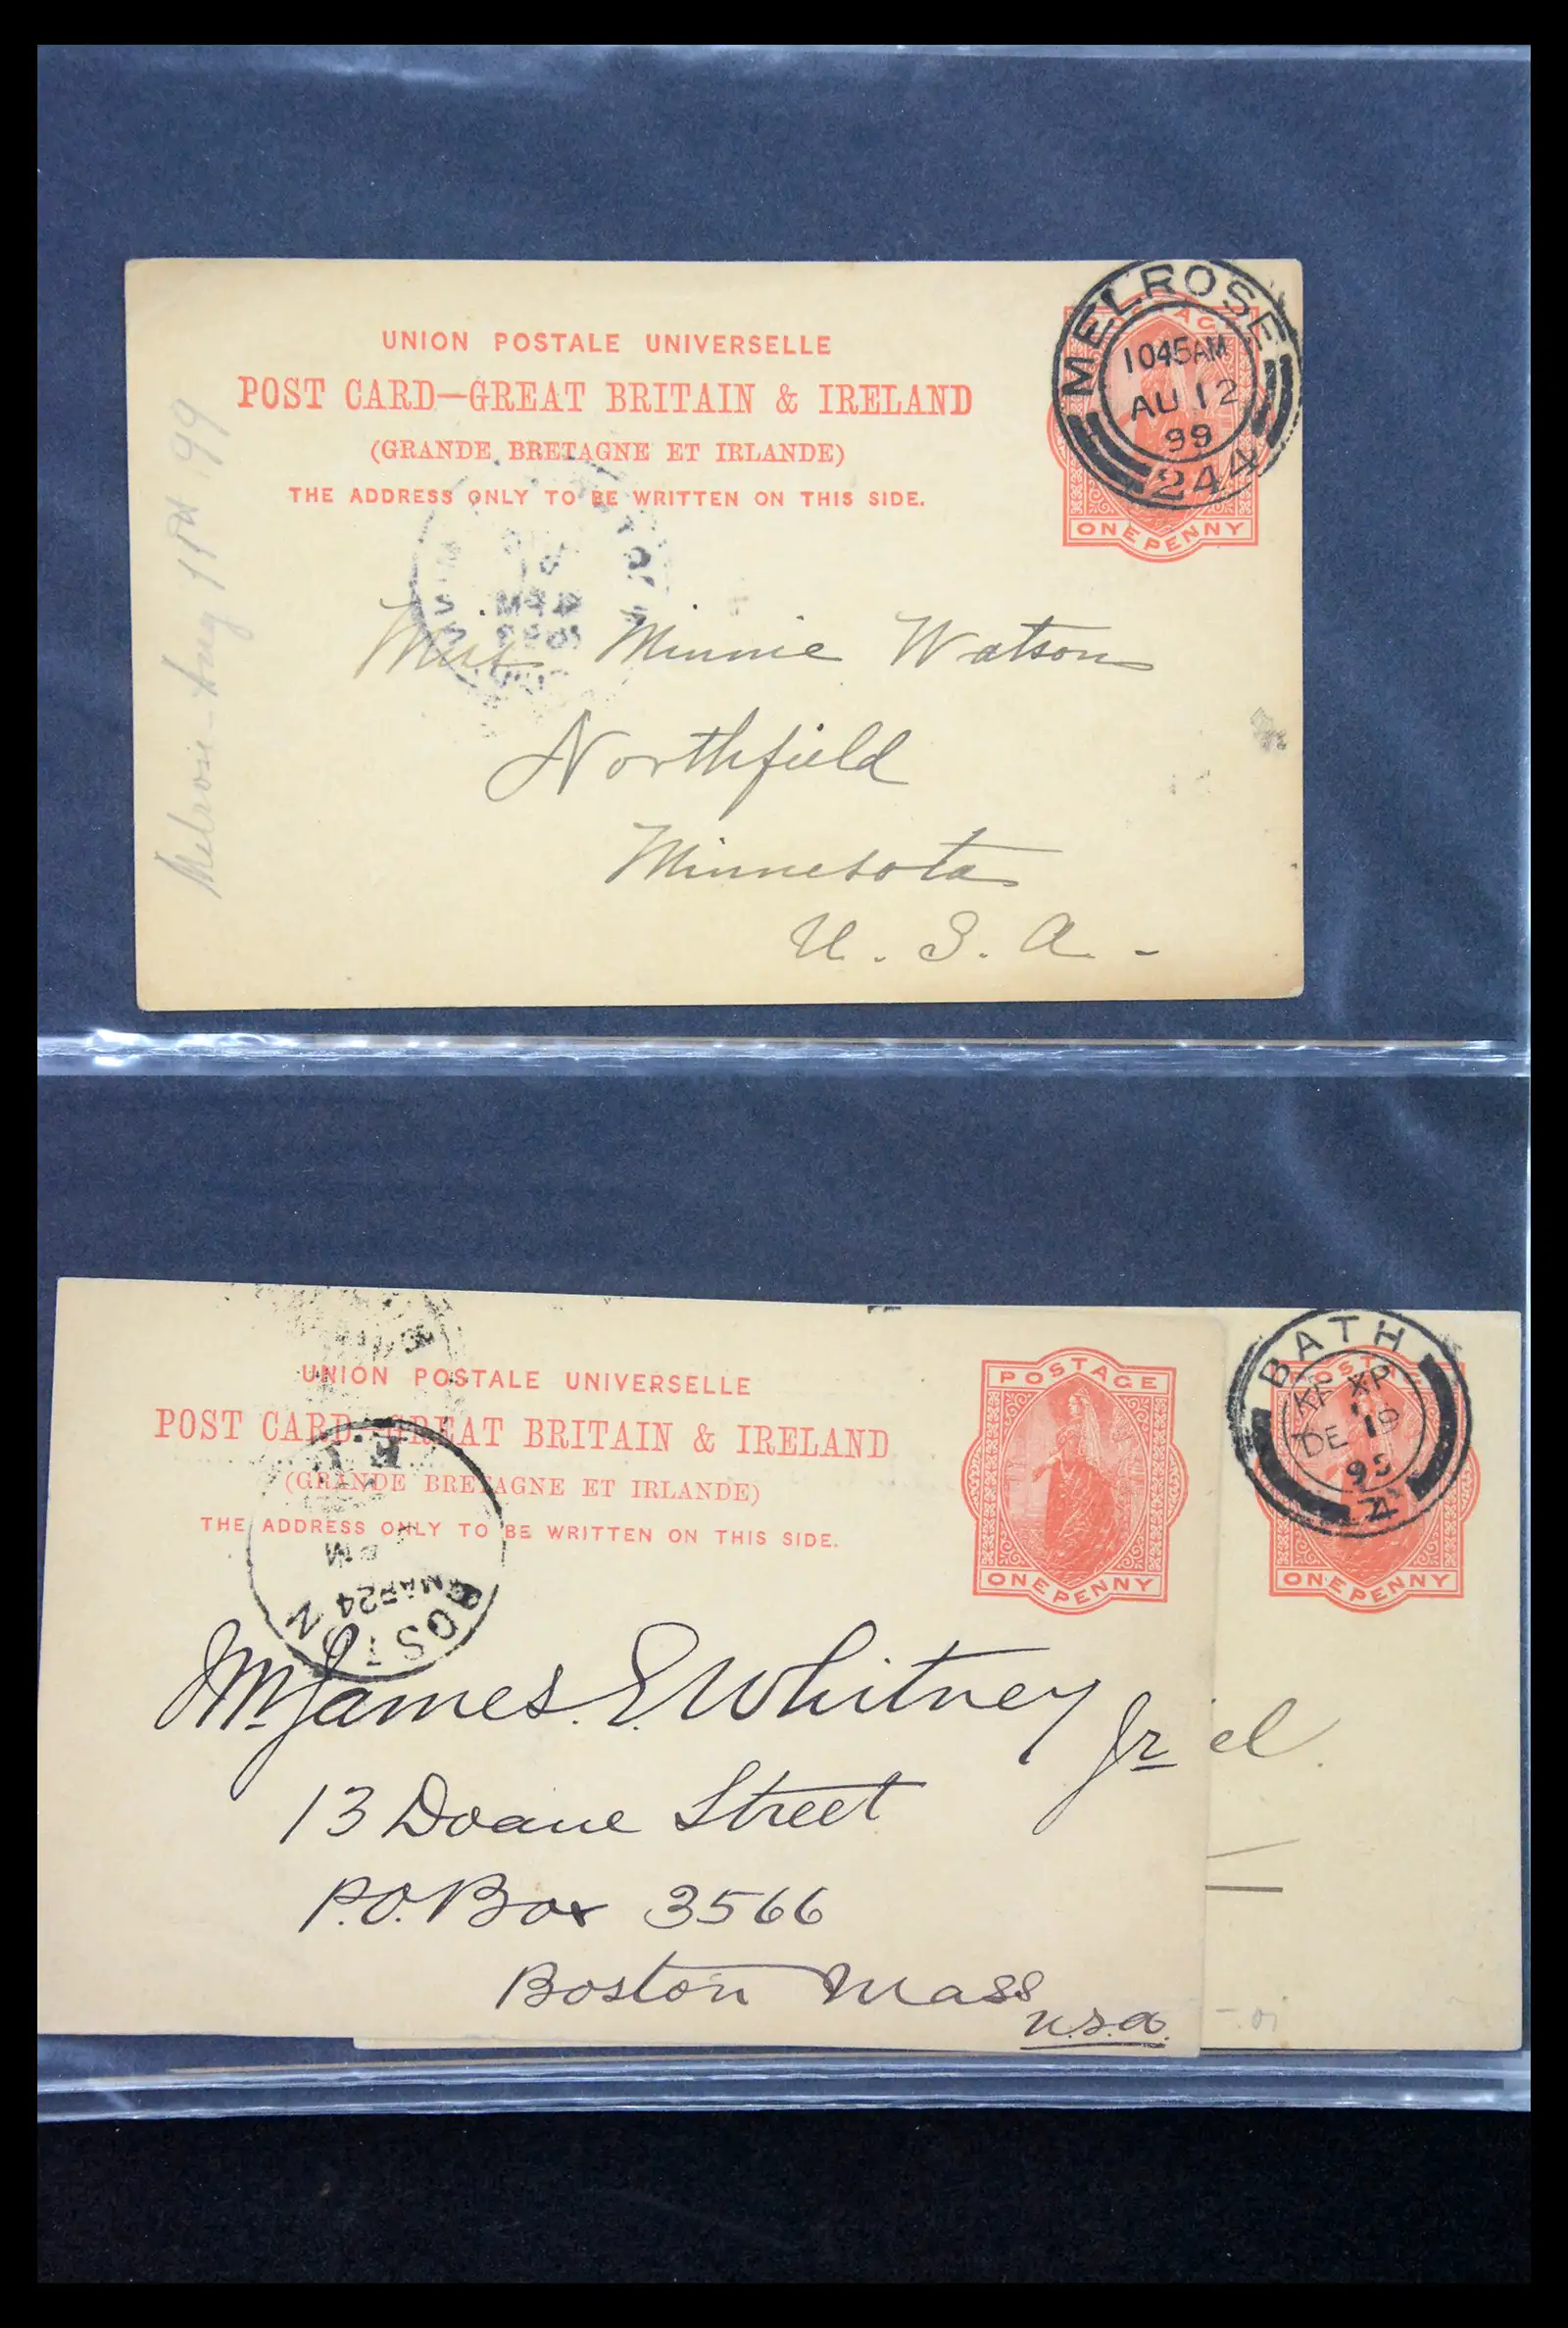 UNION POSTALE UNIVERSELLE
POST CARD—GREAT BRITAIN & IRELAND
(GRANDE BRETAGNE ET IRLANDE)
THE ADDRESS ONLY TO BE WRITTEN ON THIS SIDE.
POSTAGE
ONE PENNY
MELROSE
1045AM
AU 12
99
244
Melrose Aug 11th '99
Miss Minnie Watson
Northfield
Minnesota
U. S. A. -
UNION POSTALE UNIVERSELLE
POST CARD—GREAT BRITAIN & IRELAND
(GRANDE BRETAGNE ET IRLANDE)
THE ADDRESS ONLY TO BE WRITTEN ON THIS SIDE.
POSTAGE
ONE PENNY
BOSTON
MAR 24
PM
Mr. James. E. Whitney Jr
13 Doane Street
P.O. Box 3566
Boston Mass
U.S.A.
BATH
XP
DE 19
POSTAGE
ONE PENNY
el.